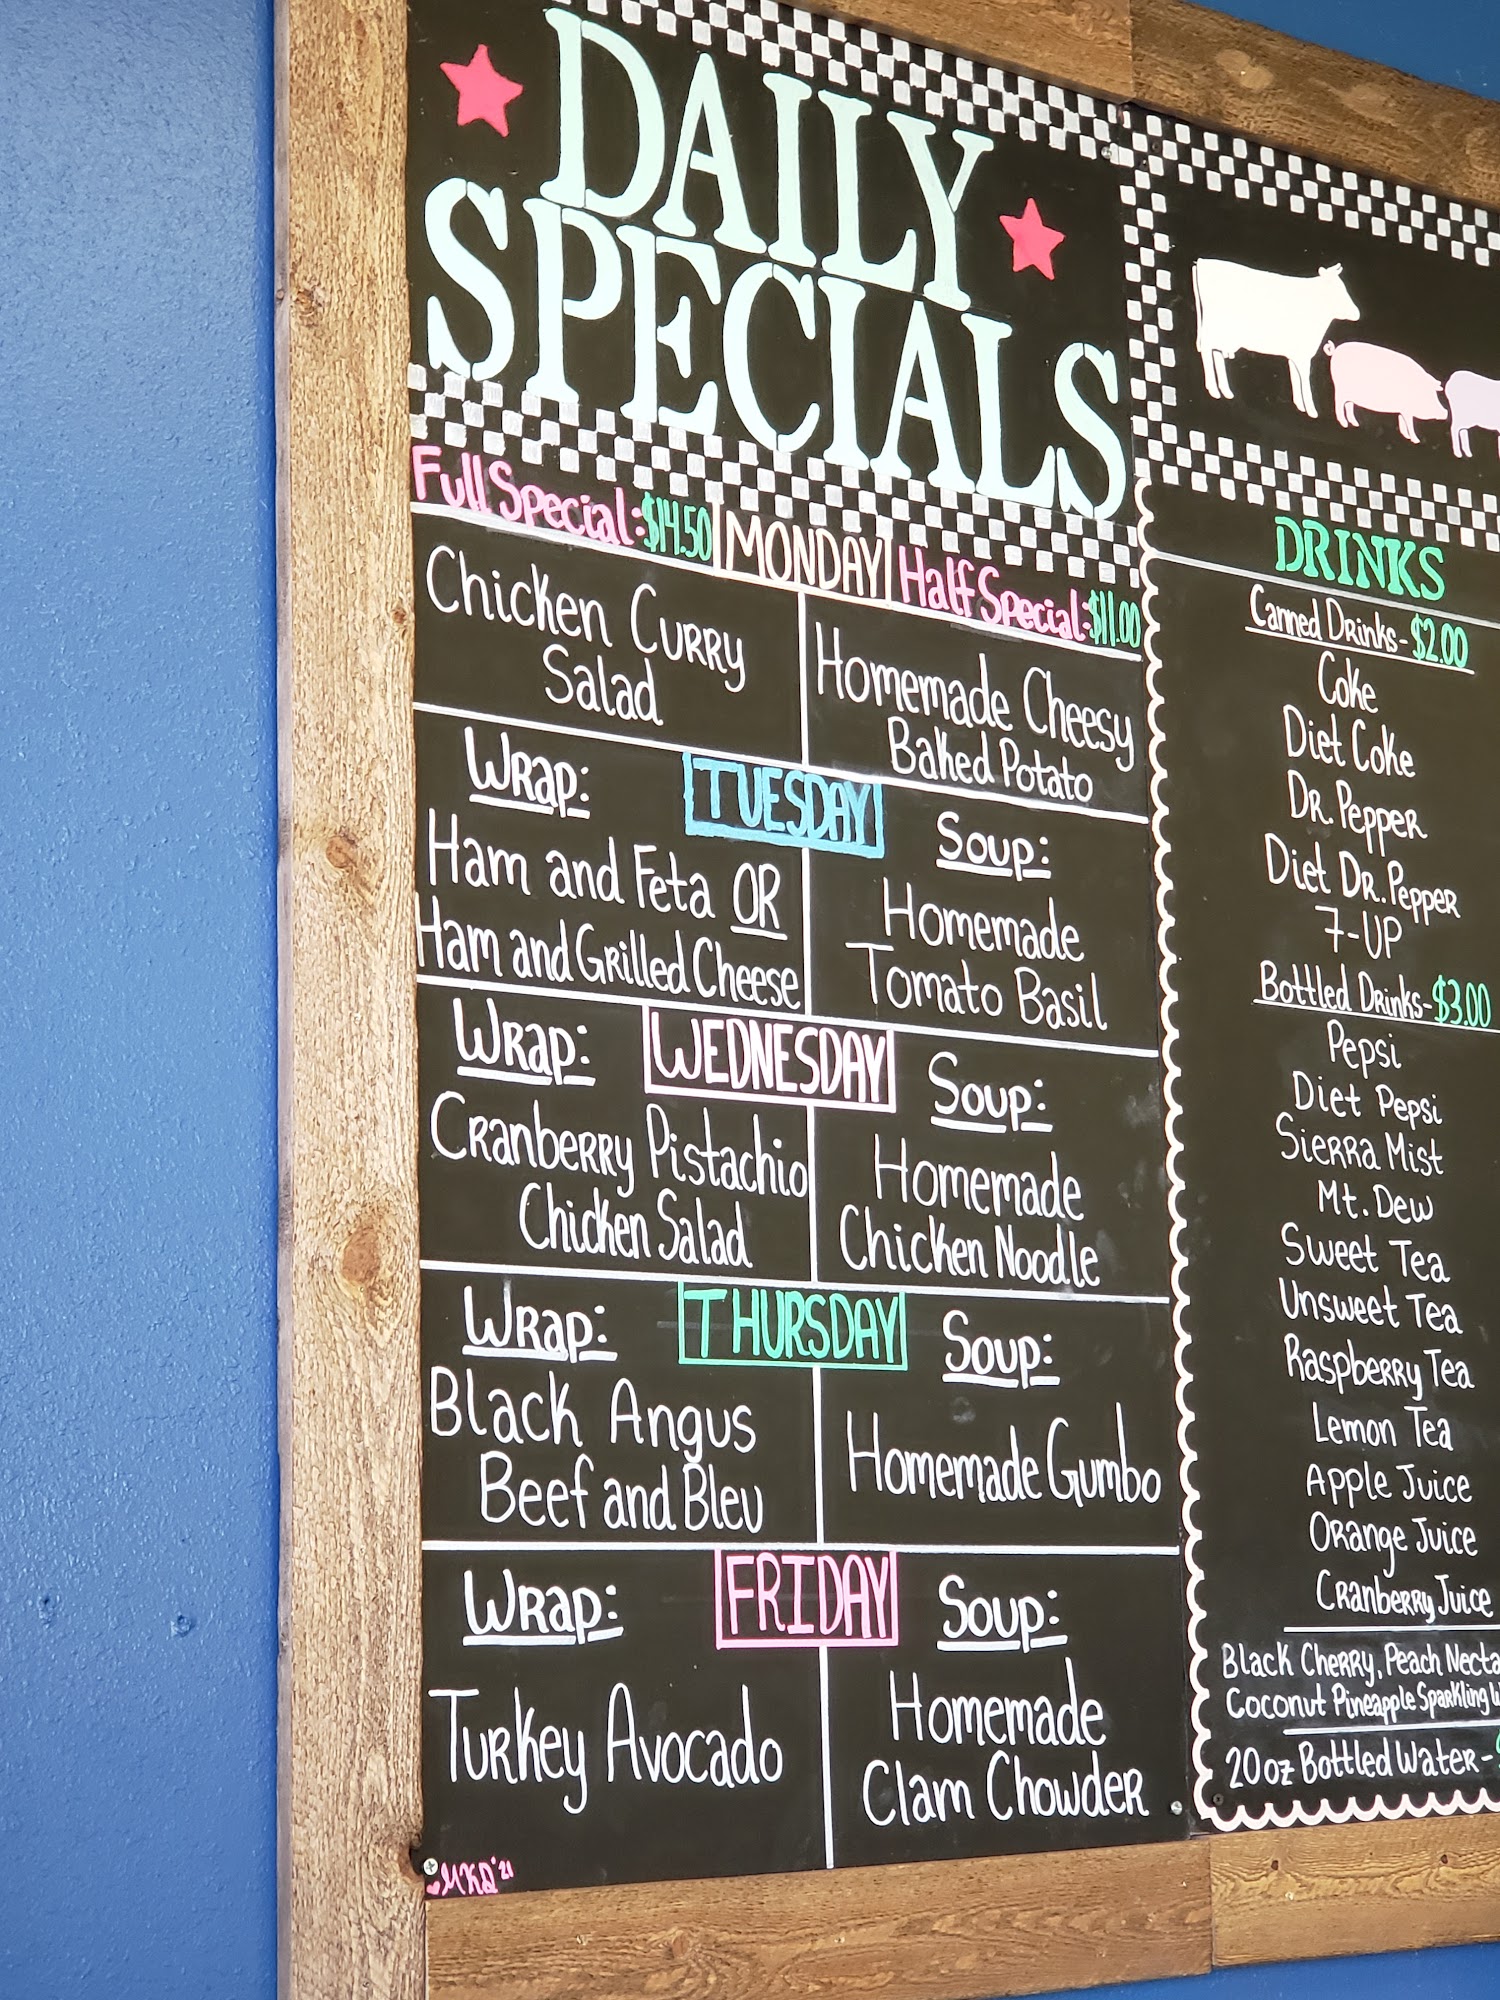 DAILY
SPECIALS
Full Special: $14.50 MONDAY Half Special: $11.00
Chicken Curry
Salad
Homemade Cheesy
Baked Potato
TUESDAY
Wrap:
Ham and Feta OR
Ham and Grilled Cheese
Soup:
Homemade
Tomato Basil
WEDNESDAY
Wrap:
Cranberry Pistachio
Chicken Salad
Soup:
Homemade
Chicken Noodle
THURSDAY
Wrap:
Black Angus
Beef and Bleu
Soup:
Homemade Gumbo
FRIDAY
Wrap:
Turkey Avocado
Soup:
Homemade
Clam Chowder
MKD '21
DRINKS
Canned Drinks - $2.00
Coke
Diet Coke
Dr. Pepper
Diet Dr. Pepper
7-UP
Bottled Drinks - $3.00
Pepsi
Diet Pepsi
Sierra Mist
Mt. Dew
Sweet Tea
Unsweet Tea
Raspberry Tea
Lemon Tea
Apple Juice
Orange Juice
Cranberry Juice
Black Cherry, Peach Necta
Coconut Pineapple Sparkling W
20oz Bottled Water -